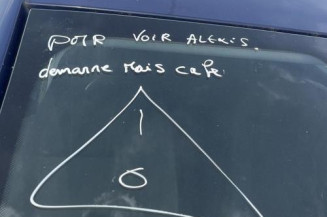 pour VOIR ALEXIS.
demanne Mais cafe
1
0